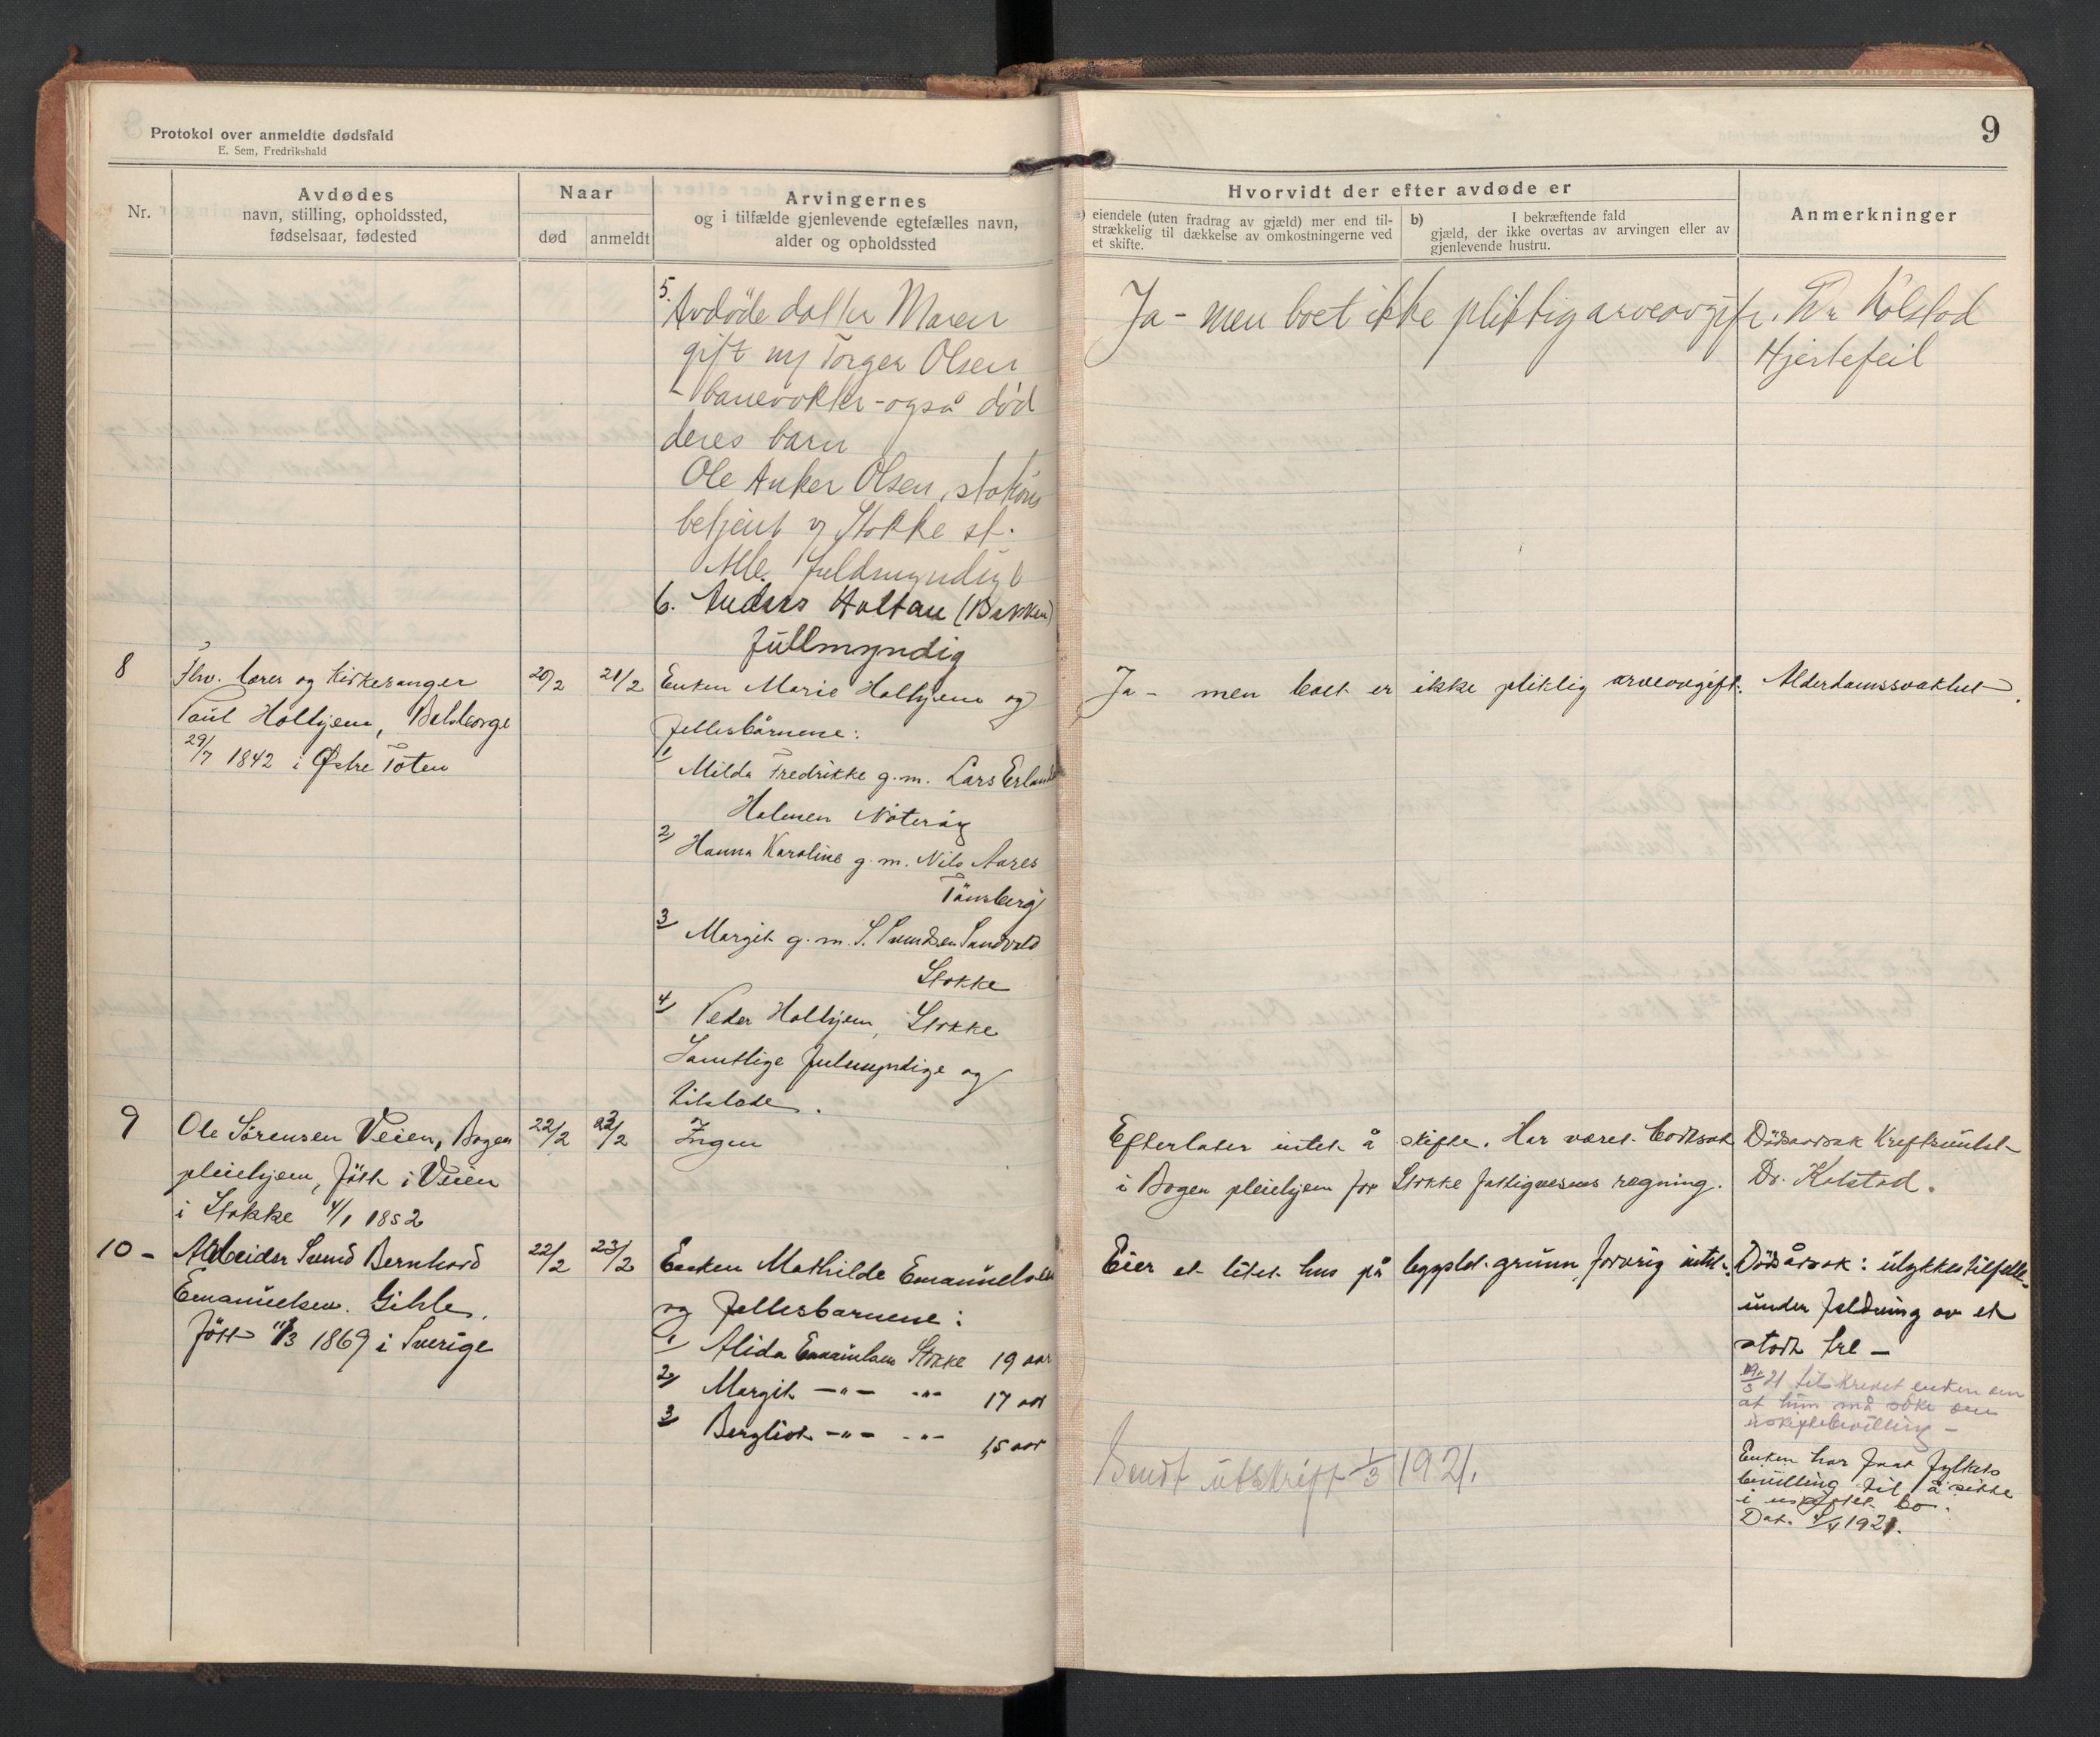 Protokol over anmeldte dødsfald
E. Sem, Fredrikshald
9
Nr.
Avdødes
navn, stilling, opholdssted,
fødselsaar, fødested
Naar
død
anmeldt
Arvingernes
og i tilfælde gjenlevende egtefælles navn,
alder og opholdssted
Hvorvidt der efter avdøde er
a) eiendele (uten fradrag av gjæld) mer end til-
strækkelig til dækkelse av omkostningerne ved
et skifte.
b) I bekræftende fald
gjæld, der ikke overtas av arvingen eller av
gjenlevende hustru.
Anmerkninger
5.
Avdøde datter Maren
gift m/ Torger Olsen
- banevokter - også død
deres barn
Ole Anker Olsen, stations
betjent v/ Stokke st.
Alle fuldmyndig
6. Anders Holtan (Bakken)
fullmyndig
Ja - men boet ikke pliktig arveavgift. Dr Kolstad
Hjertefeil
8
Fhv. lærer og Kirkesanger
Paul Holhjem, Bolsborge
29/7 1842 i Østre Toten
20/2
21/2
Enken Marie Holhjem og
fellesbarnene:
1/ Milda Fredrikke g.m. Lars Erland
Holmen Nøterøy
2/ Hanna Karoline g.m. Nils Aares
Tønsberg
3/ Margit g.m. S. Svendsen Sandvold
Stokke
4/ Peder Holhjem, Stokke
Samtlige fulmyndige og
tilstede.
Ja - men boet er ikke pliktig arveavgift.
Alderdomssvakhet.
9
Ole Sörensen Veien, Bogen
pleiehjem, født i Veien
i Stokke 4/1 1852
22/2
22/2
Ingen
Efterlater intet å skifte. Har været bortsat
i Bogen pleiehjem for Stokke fattigvesens regning.
Dödsaarsak Kreftsuldt
Dr. Kolstad.
10 -
Arbeider Svend Bernhard
Emanuelsen. Gihle.
Født 11/3 1869 i Sverige
22/2
23/2
Enken Mathilde Emanuelsen
og fellesbarnene:
1/ Alida Emanuelsen Stokke 19 aar
2/ Margit -"- -"- 17 aar
3/ Bergliot -"- -"- 15 aar
Eier et litet hus på bygslet grunn, forövrig intet.
Dödsårsak: ulykkestilfelle
under feldning av et
stort tre -
19/3 21 tilskrevet enken om
at hun må söke om
uskiftebevilling -
Enken har faat fylkets
bevilling til å sitte
i uskiftet bo.
Dat. 4/4 1921.
Sendt utskrift 1/3 1921.